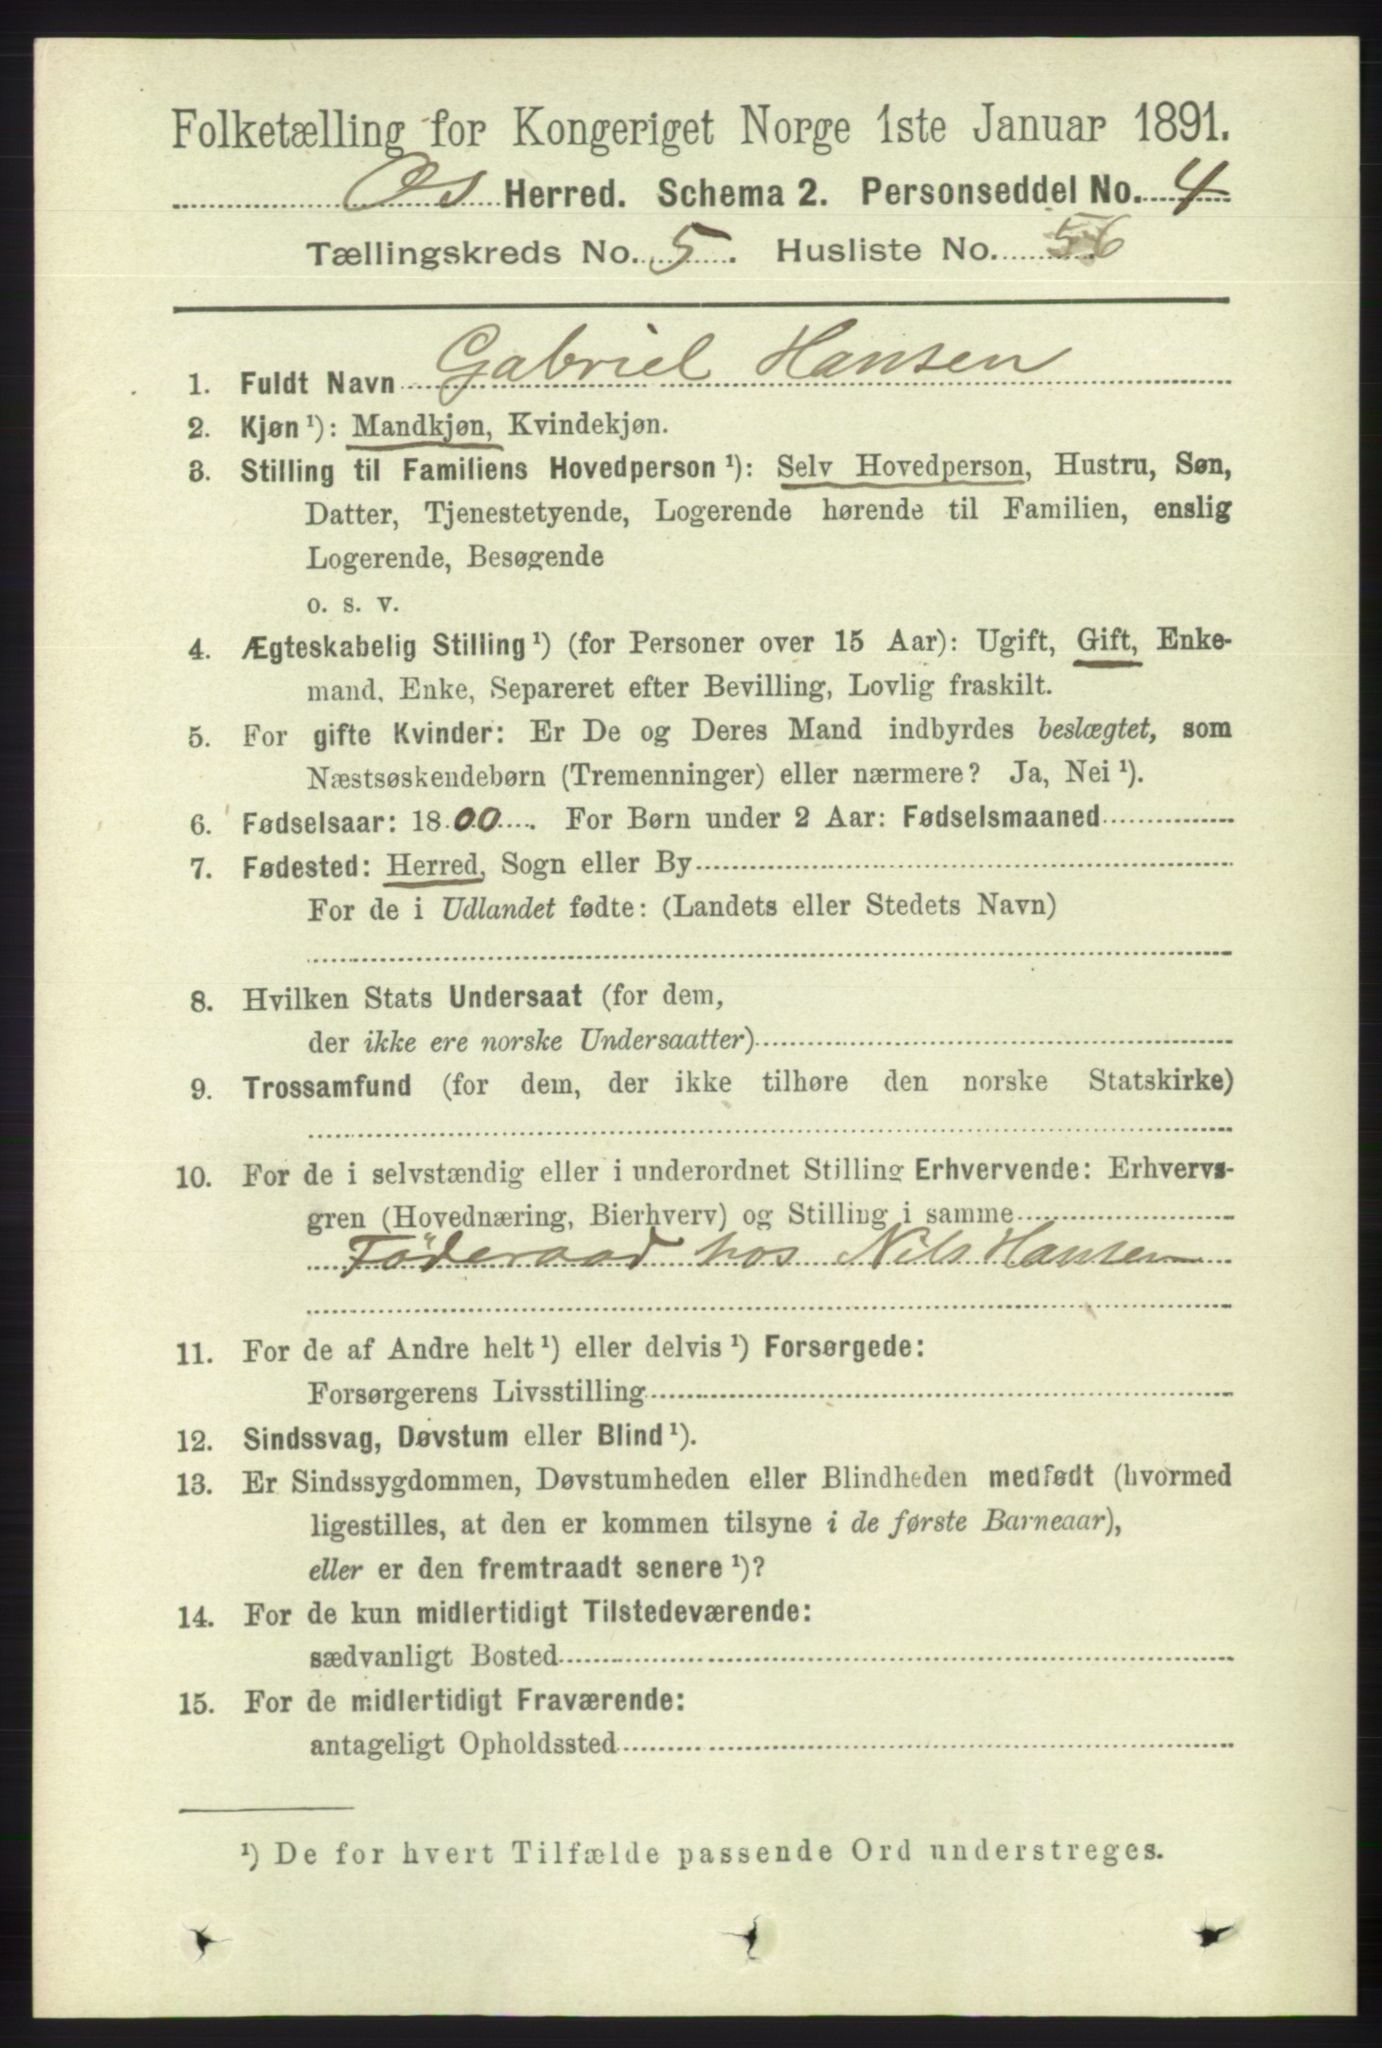 Folketælling for Kongeriget Norge 1ste Januar 1891.
Os Herred. Schema 2. Personseddel No. 4
Tællingskreds No. 5. Husliste No. 56
1. Fuldt Navn Gabriel Hansen
2. Kjøn ¹): Mandkjøn, Kvindekjøn.
3. Stilling til Familiens Hovedperson ¹): Selv Hovedperson, Hustru, Søn,
Datter, Tjenestetyende, Logerende hørende til Familien, enslig
Logerende, Besøgende
o. s. v.
4. Ægteskabelig Stilling ¹) (for Personer over 15 Aar): Ugift, Gift, Enke-
mand, Enke, Separeret efter Bevilling, Lovlig fraskilt.
5. For gifte Kvinder: Er De og Deres Mand indbyrdes beslægtet, som
Næstsøskendebørn (Tremenninger) eller nærmere? Ja, Nei ¹).
6. Fødselsaar: 1800. For Børn under 2 Aar: Fødselsmaaned
7. Fødested: Herred, Sogn eller By
For de i Udlandet fødte: (Landets eller Stedets Navn)
8. Hvilken Stats Undersaat (for dem,
der ikke ere norske Undersaatter)
9. Trossamfund (for dem, der ikke tilhøre den norske Statskirke)
10. For de i selvstændig eller i underordnet Stilling Erhvervende: Erhvervs-
gren (Hovednæring, Bierhverv) og Stilling i samme
Föderaad hos Nils Hansen
11. For de af Andre helt ¹) eller delvis ¹) Forsørgede:
Forsørgerens Livsstilling
12. Sindssvag, Døvstum eller Blind ¹).
13. Er Sindssygdommen, Døvstumheden eller Blindheden medfødt (hvormed
ligestilles, at den er kommen tilsyne i de første Barneaar),
eller er den fremtraadt senere ¹)?
14. For de kun midlertidigt Tilstedeværende:
sædvanligt Bosted
15. For de midlertidigt Fraværende:
antageligt Opholdssted
¹) De for hvert Tilfælde passende Ord understreges.